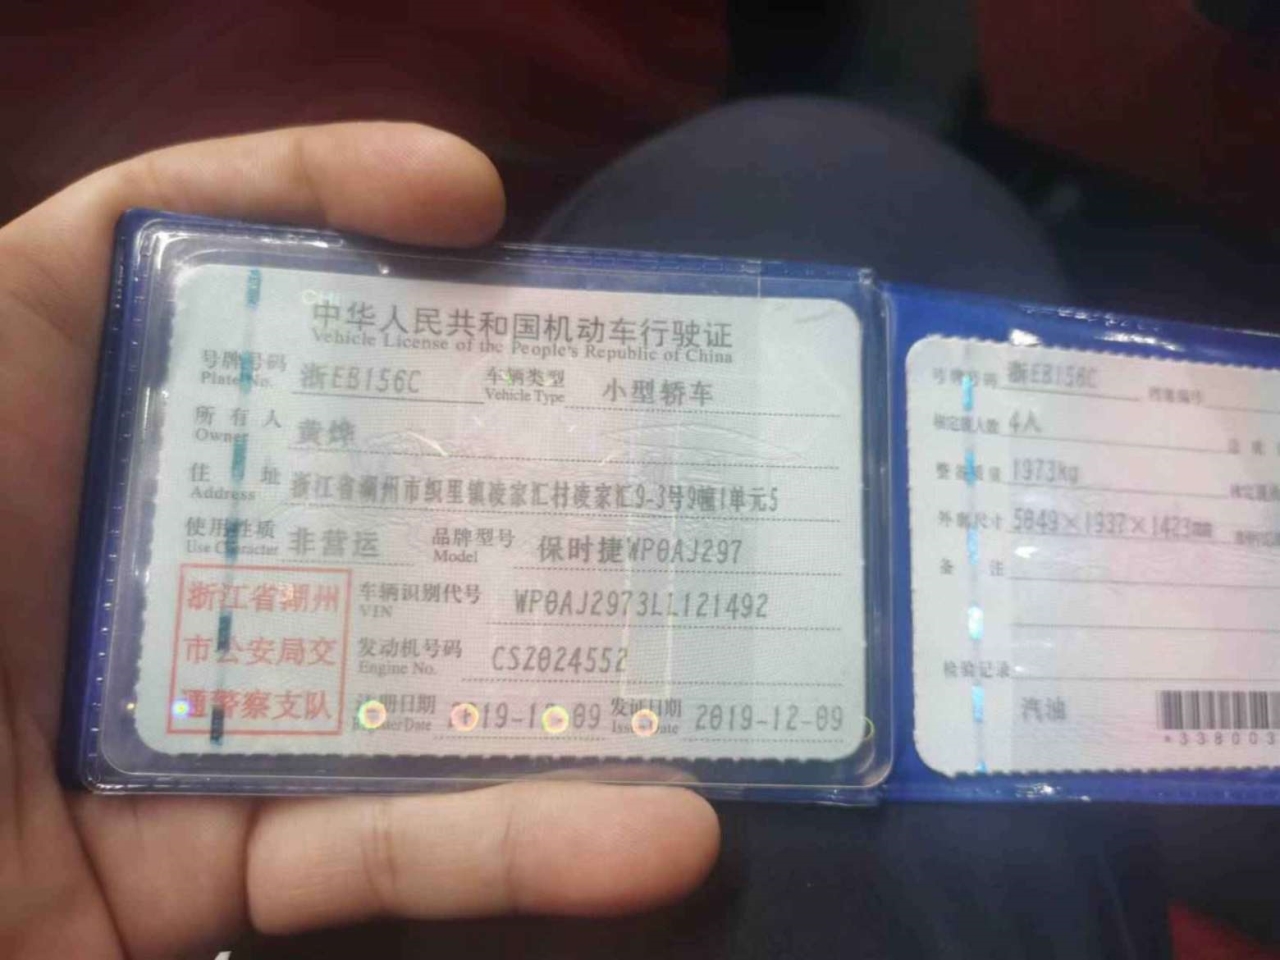 中华人民共和国机动车行驶证
Vehicle License of the People's Republic of China
号牌号码 浙EB156C 车辆类型 小型轿车
Plate No. Vehicle Type
所有人 黄烨
Owner
住址 浙江省湖州市织里镇凌家汇村凌家汇9-3号9幢1单元5
Address
使用性质 非营运 品牌型号 保时捷WP0AJ297
Use Character Model
浙江省湖州
市公安局交
通警察支队
车辆识别代号 WP0AJ2973LL121492
VIN
发动机号码 CSZ024552
Engine No.
注册日期 发证日期 2019-12-09
Register Date Issue Date
号牌号码 浙EB156C 档案编号
核定载人数 4人
整备质量 1973kg
外廓尺寸 5049×1937×1423mm
备注
检验记录
汽油
*338003